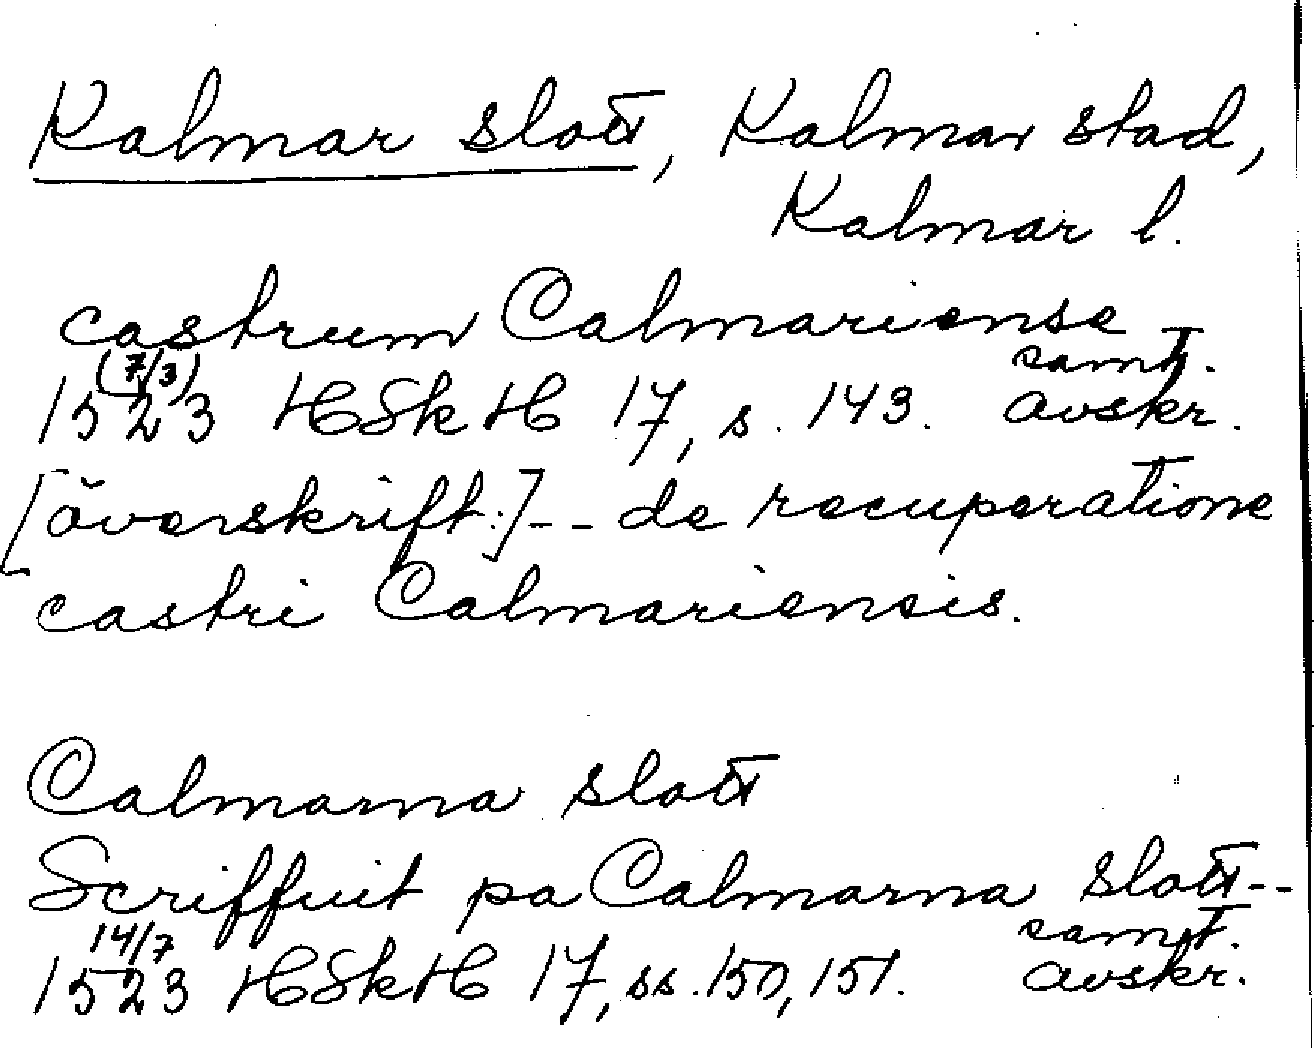 Kalmar slott, Kalmar stad,
Kalmar l.
castrum Calmariense
(7/3) samt.
1523 HSkH 17, s. 143. avskr.
[överskrift:]-- de recuperatione
castri Calmariensis.
Calmarna slott
Scriffuit pa Calmarna slott--
14/7 samt.
1523 HSkH 17, ss. 150, 151. avskr.